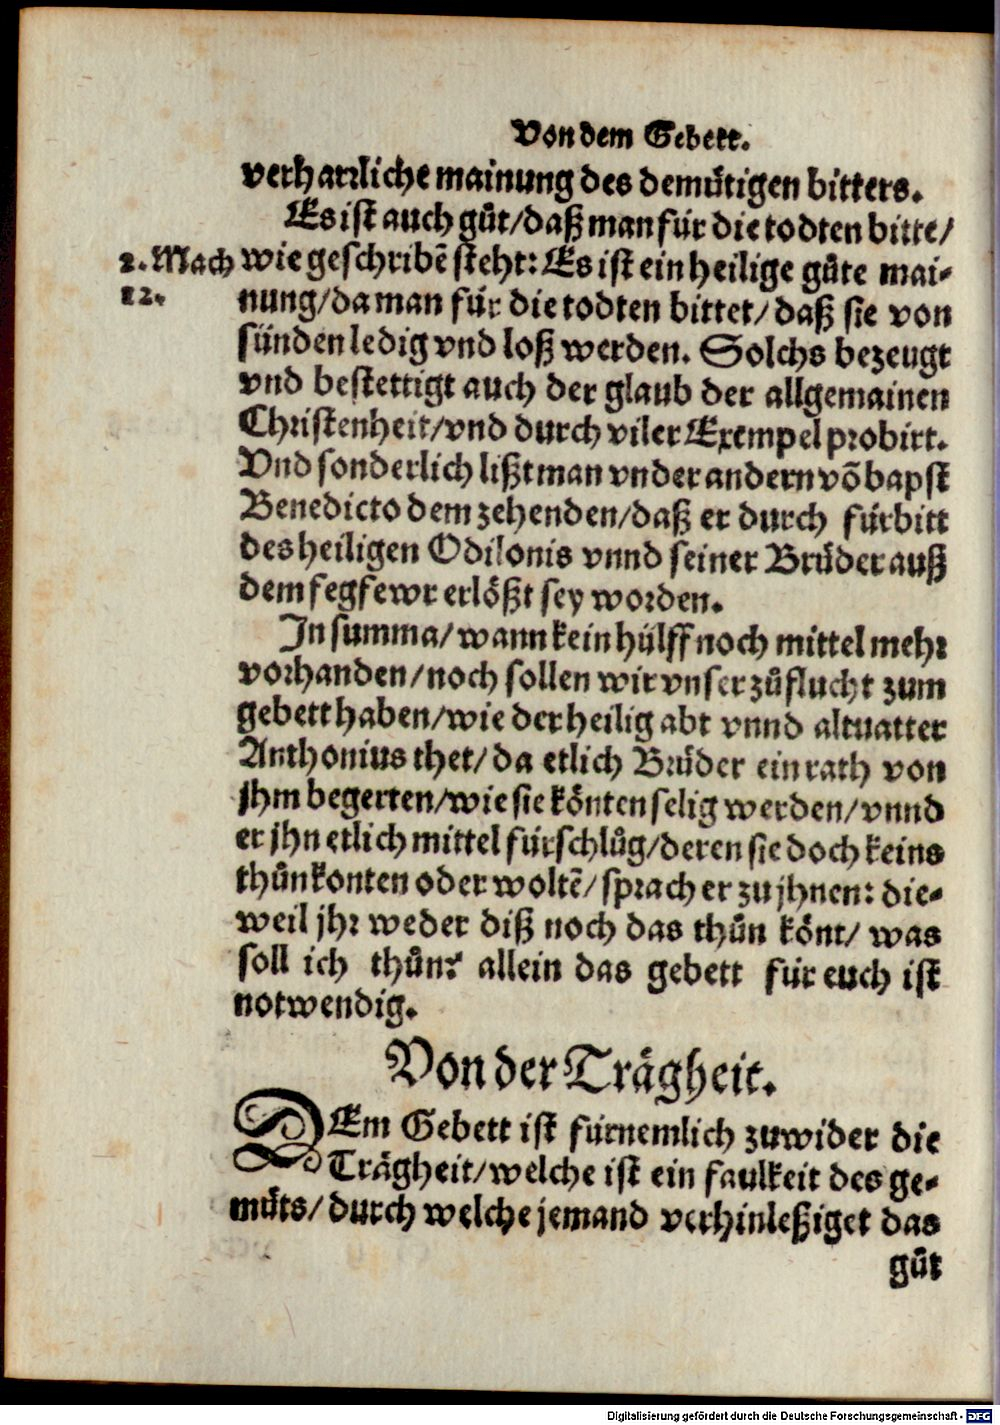 Von dem Gebett.
verharꝛliche mainung des demuͤtigen bitters.
Es ist auch guͦt/daß man fuͤr die todten bitte/
2. Mach wie geschribẽ steht: Es ist ein heilige guͦte mai-
12. nung/da man fuͤr die todten bittet/ daß sie von
suͤnden ledig vnd loß werden. Solchs bezeugt
vnd bestettigt auch der glaub der allgemainen
Christenheit/vnd durch viler Exempel probirt.
Vnd sonderlich lißt man vnder andern võ bapst
Benedicto dem zehenden/daß er durch fuͤrbitt
des heiligen Odilonis vnnd seiner Bruͤder auß
dem fegfewr erloͤßt sey worden.
In summa/wann kein huͤlff noch mittel mehr
vorhanden/noch sollen wir vnser zuͦflucht zum
gebett haben/wie der heilig abt vnnd altuatter
Anthonius thet/ da etlich Bruͤder ein rath von
jhm begerten/wie sie koͤnten selig werden/vnnd
er jhn etlich mittel fuͤrschluͦg/deren sie doch keins
thuͦn konten oder woltẽ/ sprach er zu jhnen: die-
weil jhr weder diß noch das thuͦn koͤnt/ was
soll ich thuͦn? allein das gebett fuͤr euch ist
notwendig.
Von der Traͤgheit.
DEm Gebett ist fuͤrnemlich zuwider die
Traͤgheit/welche ist ein faulkeit des ge-
muͤts/ durch welche jemand verhinleßiget das
guͦt
Digitalisierung gefördert durch die Deutsche Forschungsgemeinschaft - DFG